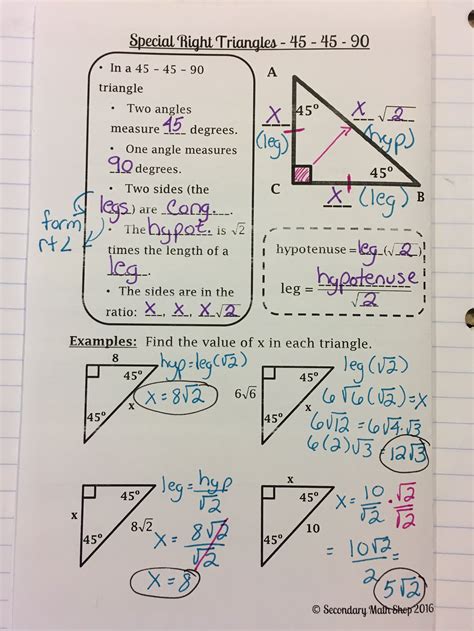 Special Right Triangles - 45 - 45 - 90
• In a 45 – 45 – 90
triangle
• Two angles
measure 45 degrees.
• One angle measures
90 degrees.
• Two sides (the
legs) are cong.
form
rt ∠
• The hypot. is √2
times the length of a
leg.
• The sides are in the
ratio: x, x, x√2
A
x
(leg)
45°
x √2
(hyp)
45°
C
x (leg)
B
hypotenuse = leg(√2)
leg = hypotenuse
√2
Examples: Find the value of x in each triangle.
8
45°
45°
x
hyp = leg(√2)
x = 8√2
6√6
45°
45°
x
leg(√2)
6√6(√2) = x
6√12 = 6√4·√3
6(2)√3 = 12√3
x
45°
45°
8√2
leg = hyp
√2
x = 8√2
√2
x = 8
x
45°
45°
10
x = 10 · √2
√2 √2
= 10√2
2
5√2
© Secondary Math Shop 2016